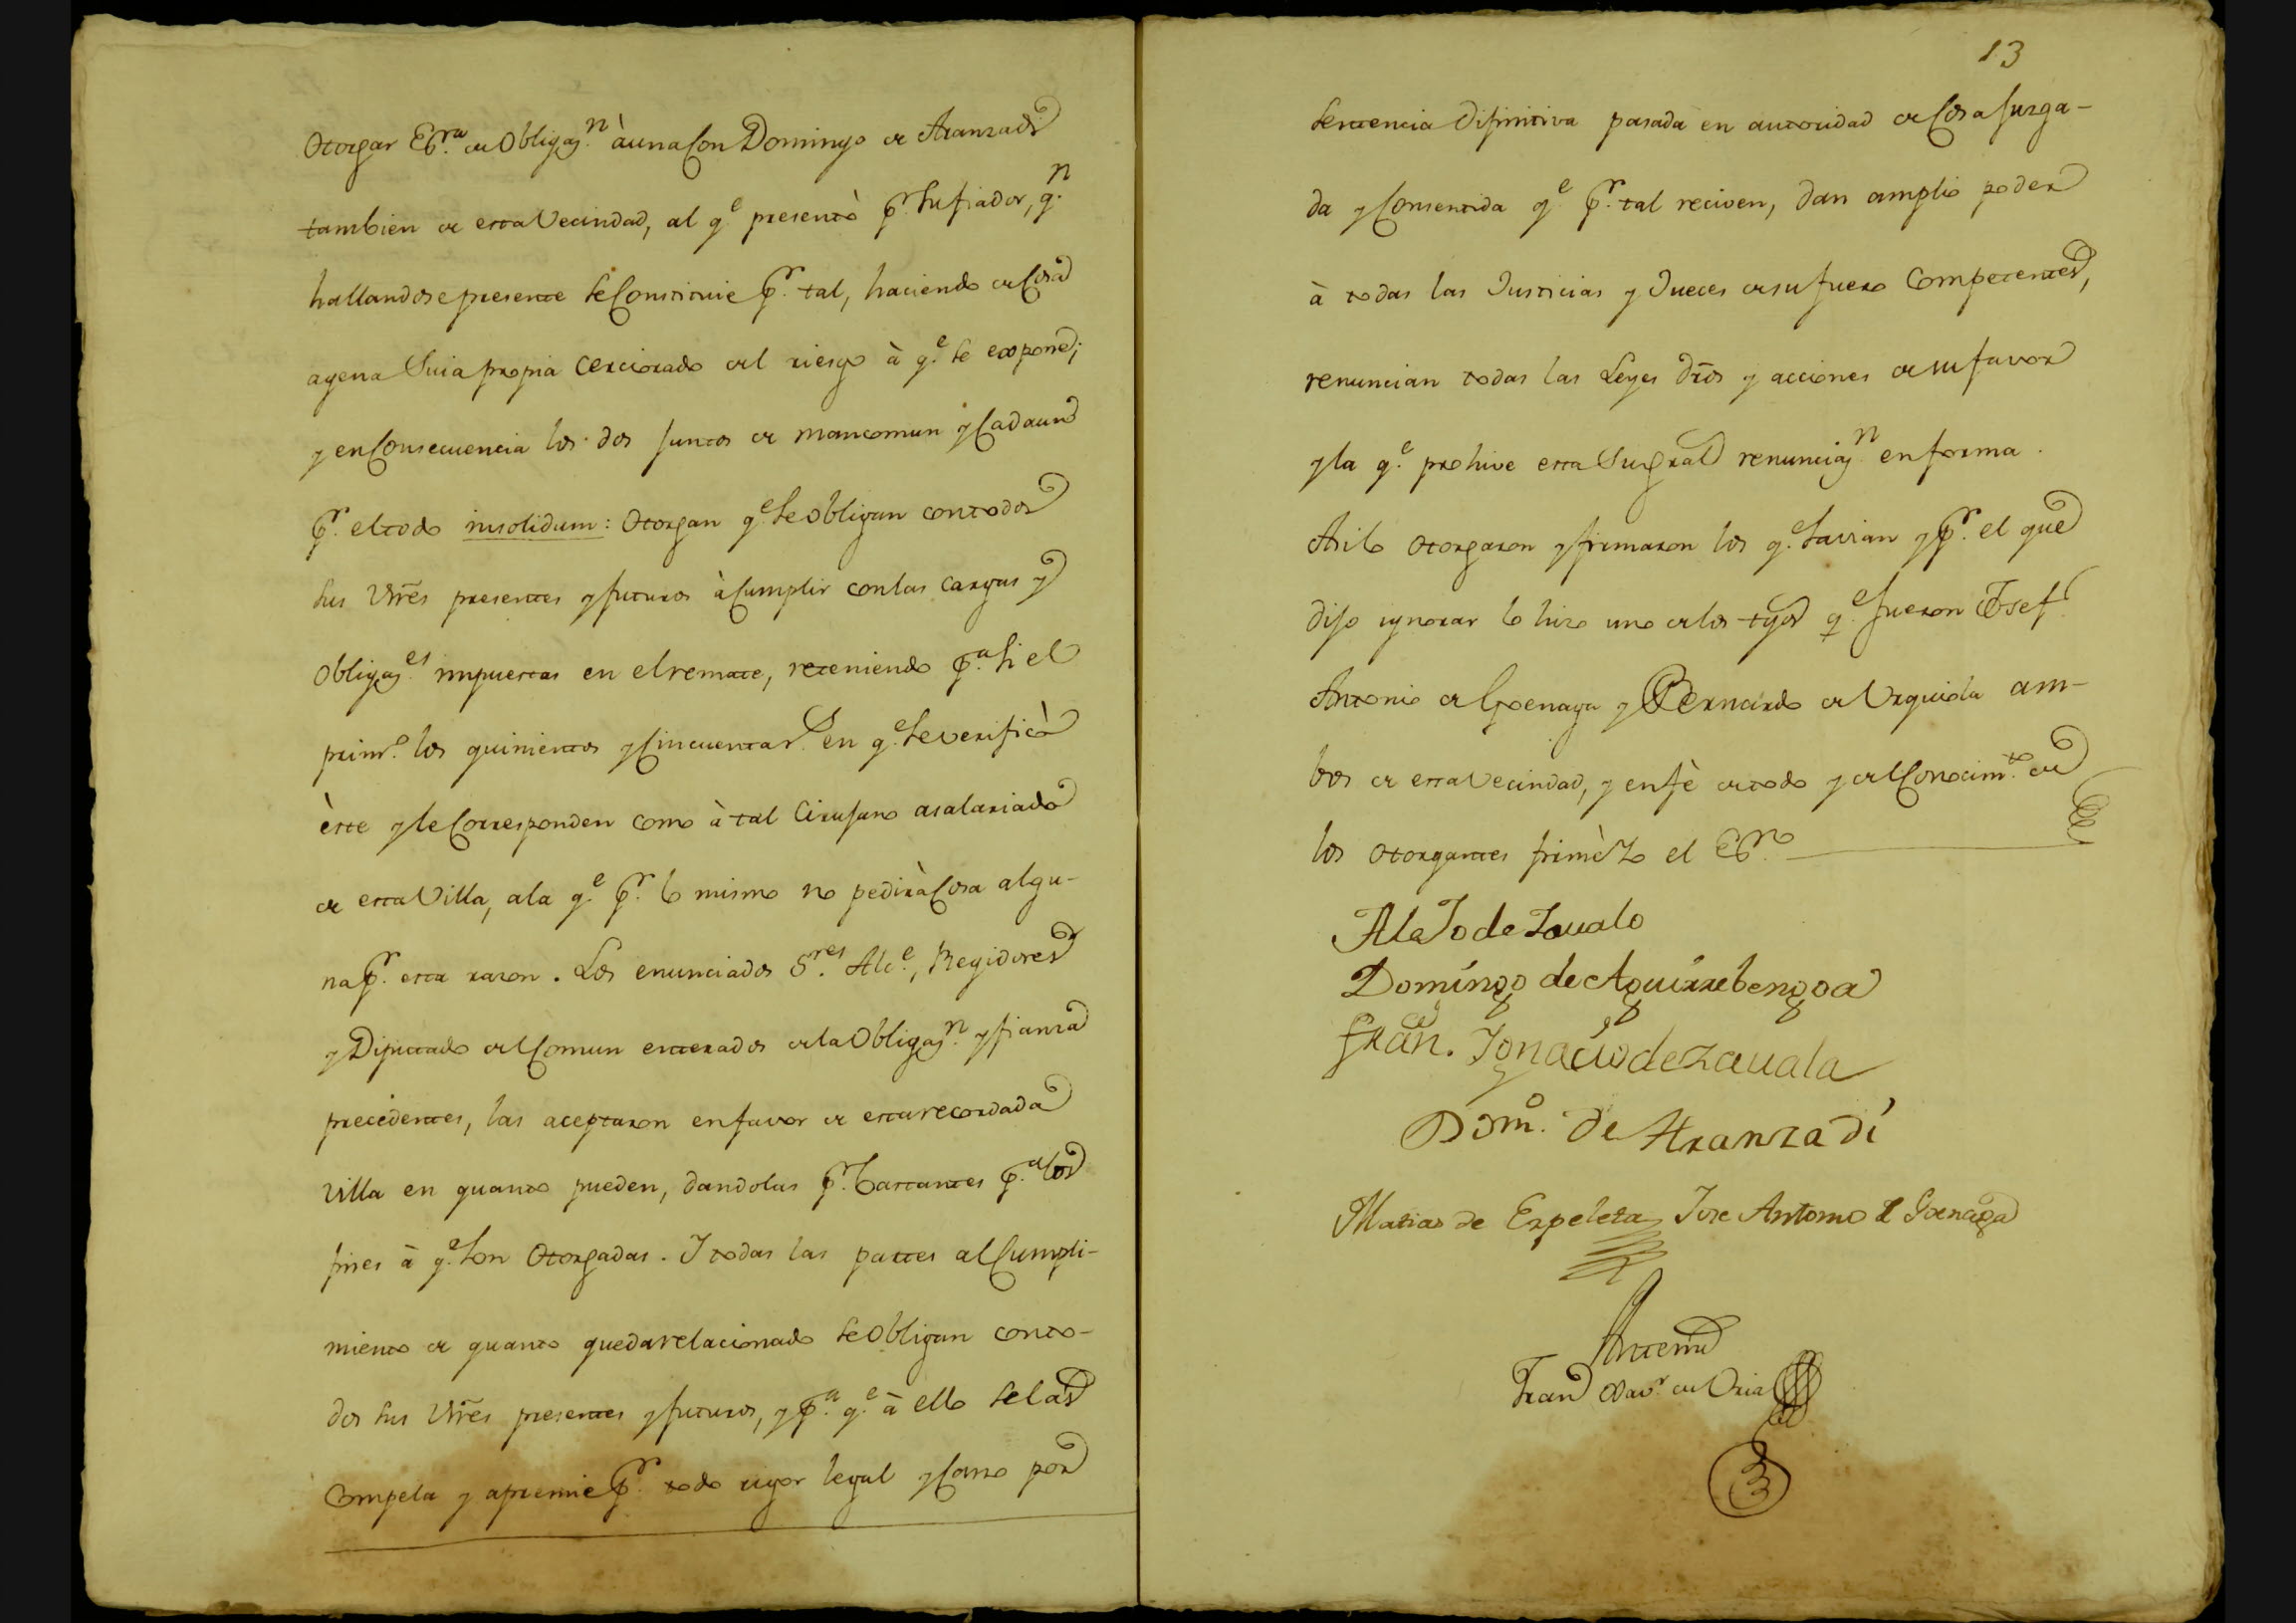 otorgar Es.ra de obligaz.n à una con Domingo de Aranzadi
tambien de esta Vecindad, al q.e presentò p.r su fiador, q.n
hallandose presente se constituie p.r tal, haciendo de cosa
agena suia propia cerciorado del riesgo à q.e se expone;
y en consecuencia los dos juntos de mancomun y cada uno
p.r el todo insolidum: otorgan q.e se obligan con todos
sus Vnes presentes y futuros à cumplir con las cargas y
obligaz.es impuestas en el remate, reteniendo p.a si el
prim.o los quinientos y cincuenta r.s en q.e se verificò
èste y le corresponden como à tal Cirujano asalariado
de esta Villa, a la q.e p.r lo mismo no pedirà cosa algu-
na p.r esta razon. Los enunciados S.res Alc.e, Regidores
y Diputado del Comun enterados de la obligaz.n y fianza
precedentes, las aceptaron en favor de esta recordada
Villa en quanto pueden, dandolas p.r bastantes p.a los
fines à q.e son otorgadas. I todas las partes al cumpli-
miento de quanto queda relacionado se obligan con to-
dos sus Vnes presentes y futuros, y p.a q.e à ello se las
compela y apremie p.r todo rigor legal y como por
13
sentencia difinitiva pasada en autoridad de cosa juzga-
da y consentida q.e p.r tal reciven, dan amplio poder
à todas las Justicias y Jueces de su fuero competentes,
renuncian todas las Leyes dros y acciones de su favor
y la q.e prohive esta su gral renunciaz.n en forma.
Asilo otorgaron y firmaron los q.e savian y p.r el que
dijo ignorar lo hizo uno de los tgos q.e fueron Josef
Antonio de Goenaga y Bernardo de Urquiola am-
bos de esta vecindad, y en fè de todo y del conocim.to de
los otorgantes firmè Yo el Es.no
Alejo de Zaualo
Domingo de Aguirrebengoa
Fran.co Ignacio de Zauala
Dom.o de Aranzadi
Matias de Ezpeleta Jose Antonio de Goenaga
Antemi
Fran.co Xav.r de Oria